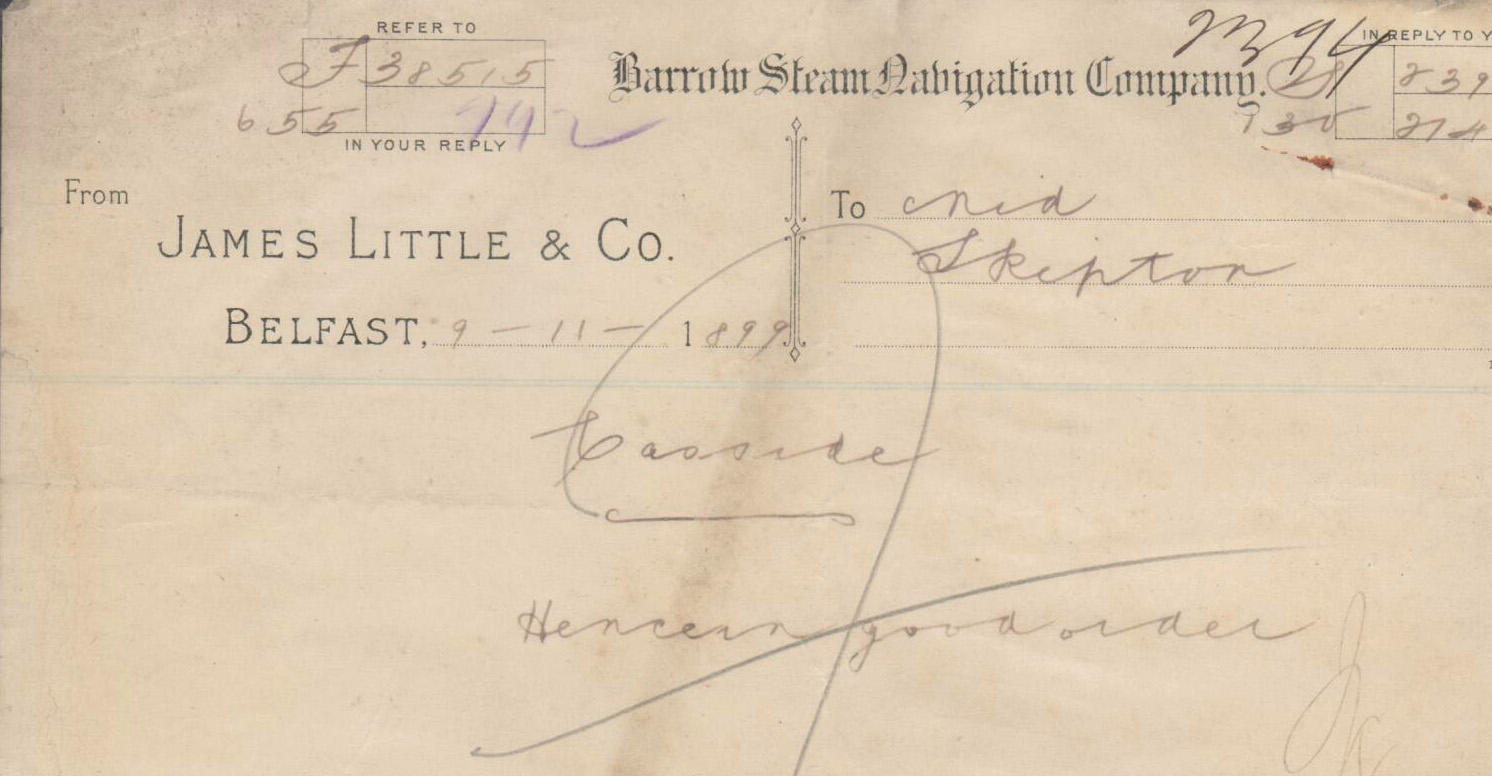 REFER TO
F 38515
655 992
IN YOUR REPLY
Barrow Steam Navigation Company.
IN REPLY TO Y
239
214
From
JAMES LITTLE & Co.
BELFAST, 9 - 11 - 1899
To Mid
Skipton
Casside
Hence in good order